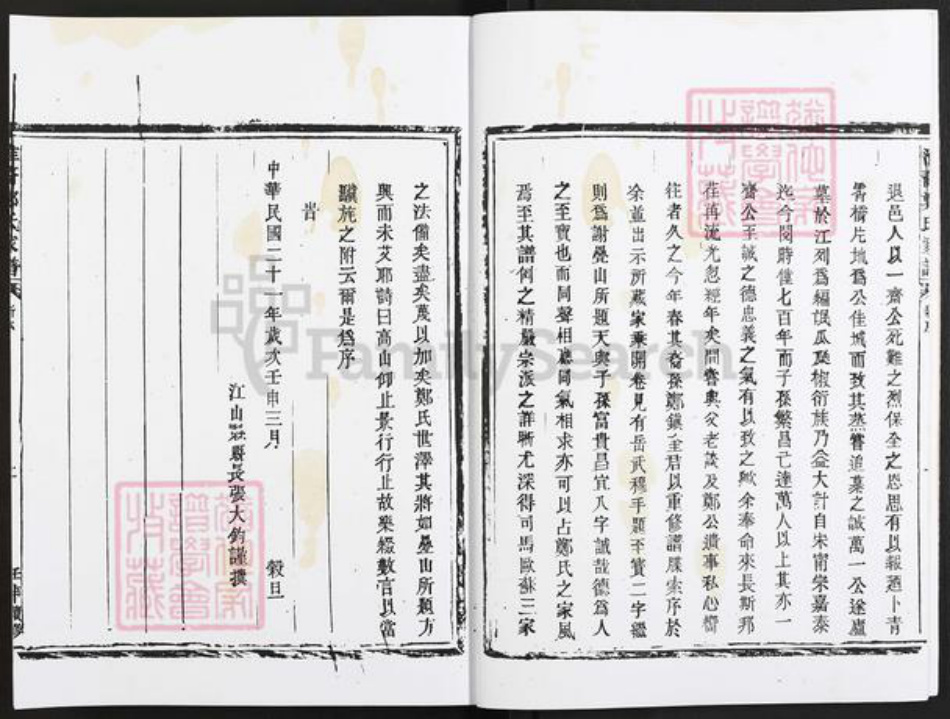 退邑人以一齋公死難之烈保全之恩思有以報廼卜青
霄橋片地為公佳城而致其蒸嘗追墓之誠萬一公遂廬
墓於江列為編氓瓜瓞椒衍族乃益大計自宋甯宗嘉泰
迄今閱時僅七百年而子孫繁昌已達萬人以上其亦一
齋公至誠之德忠義之氣有以致之歟余奉命來長斯邦
荏苒流光忽經年矣間嘗與父老談及鄭公遺事私心嚮
往者久之今年春其裔孫鄭鎮全君以重修譜牒索序於
余並出示所藏家乘開卷見有岳武穆手題至寶二字繼
則為謝疊山所題天與子孫富貴昌宜八字誠哉德為人
之至寶也而同聲相應同氣相求亦可以占鄭氏之家風
焉至其譜例之精嚴宗派之詳晰尤深得司馬歐蘇三家
之法備矣盡矣蔑以加矣鄭氏世澤其將如疊山所題方
興而未艾耶詩曰高山仰止景行行止故樂綴數言以當
驥旄之附云爾是為序
旹
中華民國二十一年歲次壬申三月 穀旦
江山縣縣長張大鈞謹撰
壬申續修
FamilySearch